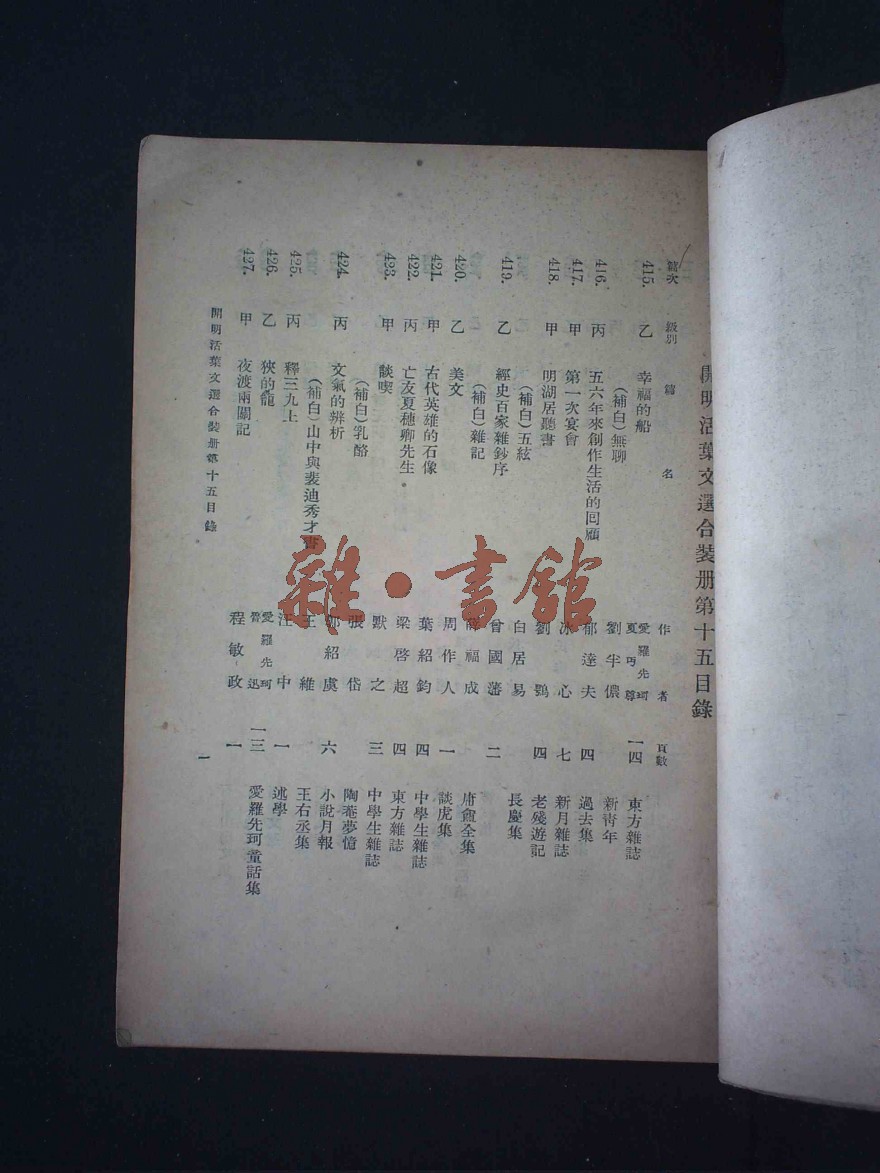 開明活葉文選合裝册第十五目錄
篇次 級別 篇名 作者 頁數
415. 乙 幸福的船 愛羅先珂 夏丏尊 一四 東方雜誌
(補白)無聊 劉半儂 新靑年
416. 丙 五六年來創作生活的囘顧 郁達夫 四 過去集
417. 甲 第一次宴會 冰心 七 新月雜誌
418. 甲 明湖居聽書 劉鶚 四 老殘遊記
(補白)五絃 白居易 長慶集
419. 乙 經史百家雜鈔序 曾國藩 二
(補白)雜記 薛福成 庸盦全集
420. 乙 美文 周作人 一 談虎集
421. 甲 古代英雄的石像 葉紹鈞 四 中學生雜誌
422. 丙 亡友夏穗卿先生 梁啓超 四 東方雜誌
423. 甲 談喫 默之 三 中學生雜誌
(補白)乳酪 張岱 陶菴夢憶
424. 丙 文氣的辨析 郭紹虞 六 小說月報
(補白)山中與裴迪秀才書 王維 王右丞集
425. 丙 釋三九上 汪中 一 述學
426. 乙 狹的籠 愛羅先珂 魯迅 一三 愛羅先珂童話集
427. 甲 夜渡兩關記 程敏政 一
開明活葉文選合裝册第十五目錄
一
雜·書館